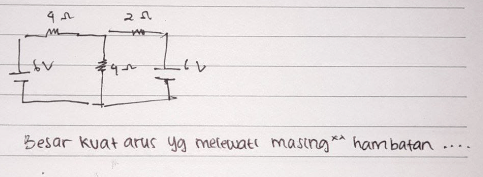 4 Ω 2 Ω
6V 4 Ω 6 V
Besar kuat arus yg melewati masing ** hambatan ....